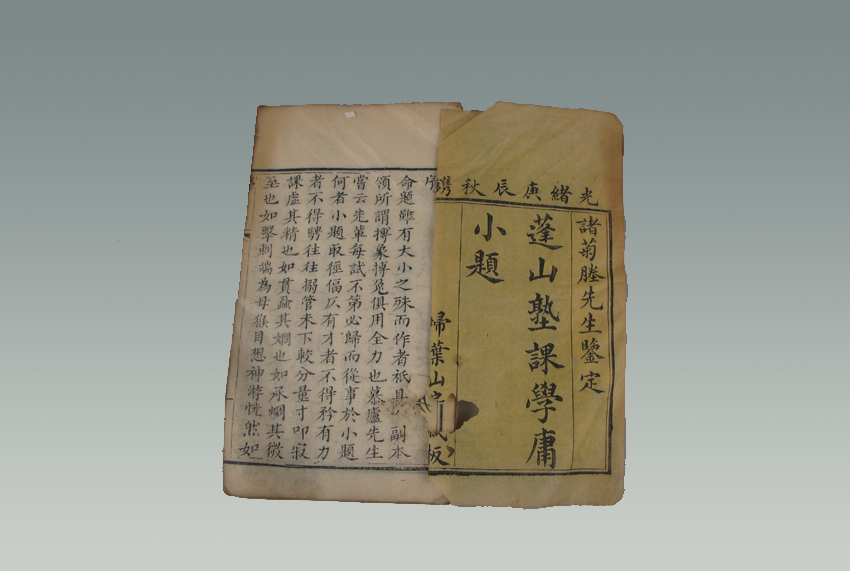 光緒庚辰秋鐫
諸菊塍先生鑒定
蓬山塾課學庸
小題
掃葉山房藏板
序
命題雖有大小之殊而作者祇具副本
領所謂搏象搏兔俱用全力也慕廬先生
嘗云先輩每試不第必歸而從事於小題
何者小題取徑偪仄有才者不得矜有力
者不得騁往往搦管未下較分量寸叩寂
課虛其精也如貫蝨其嫻也如承蜩其微
至也如棘刺端為母猴目想神游恍然如